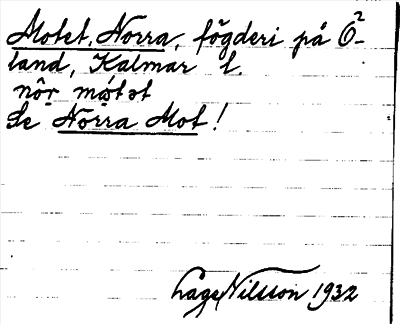 Motet, Norra, fögderi på Ö²-
land, Kalmar l.
nôr mótət
Se Norra Mot!
Lage Nilsson 1932